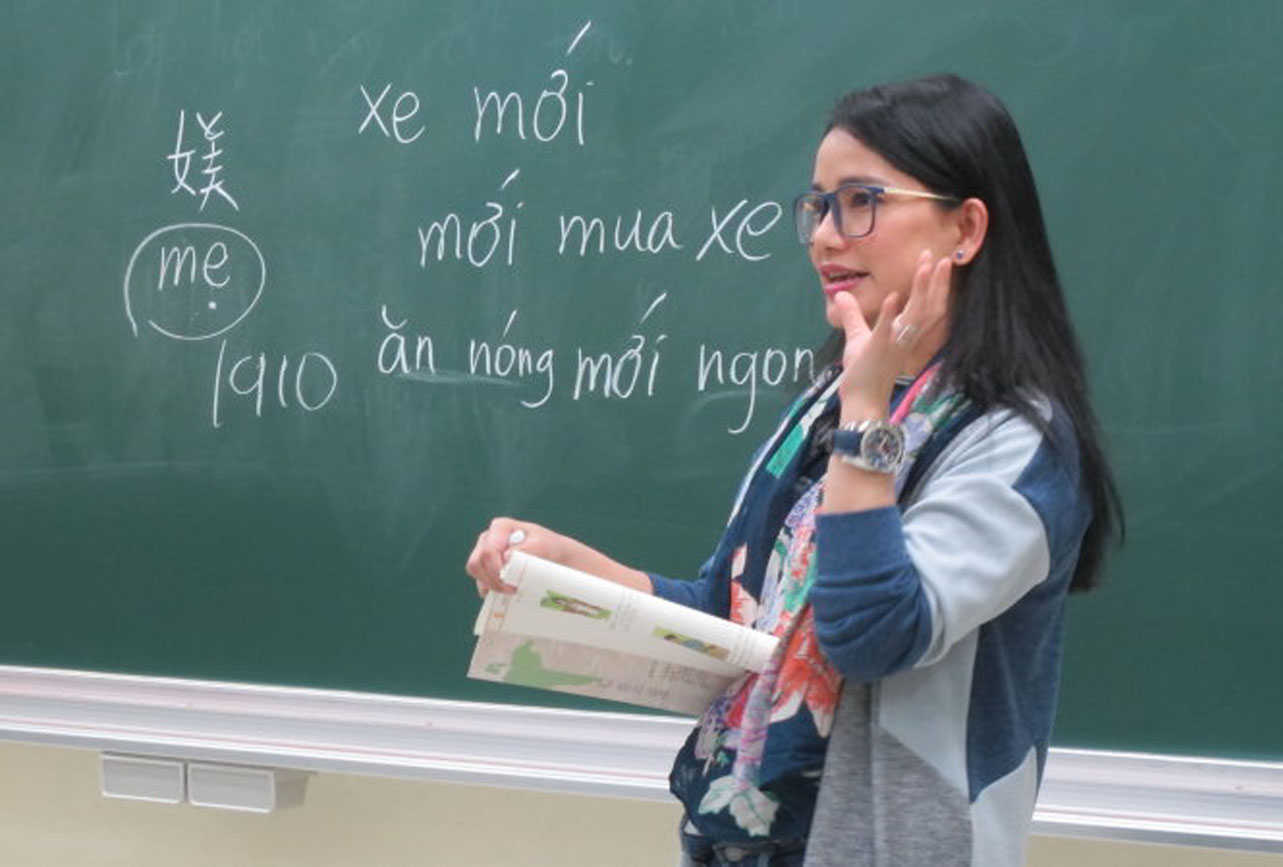 媄
mẹ
1910
xe mới
mới mua xe
ăn nóng mới ngon